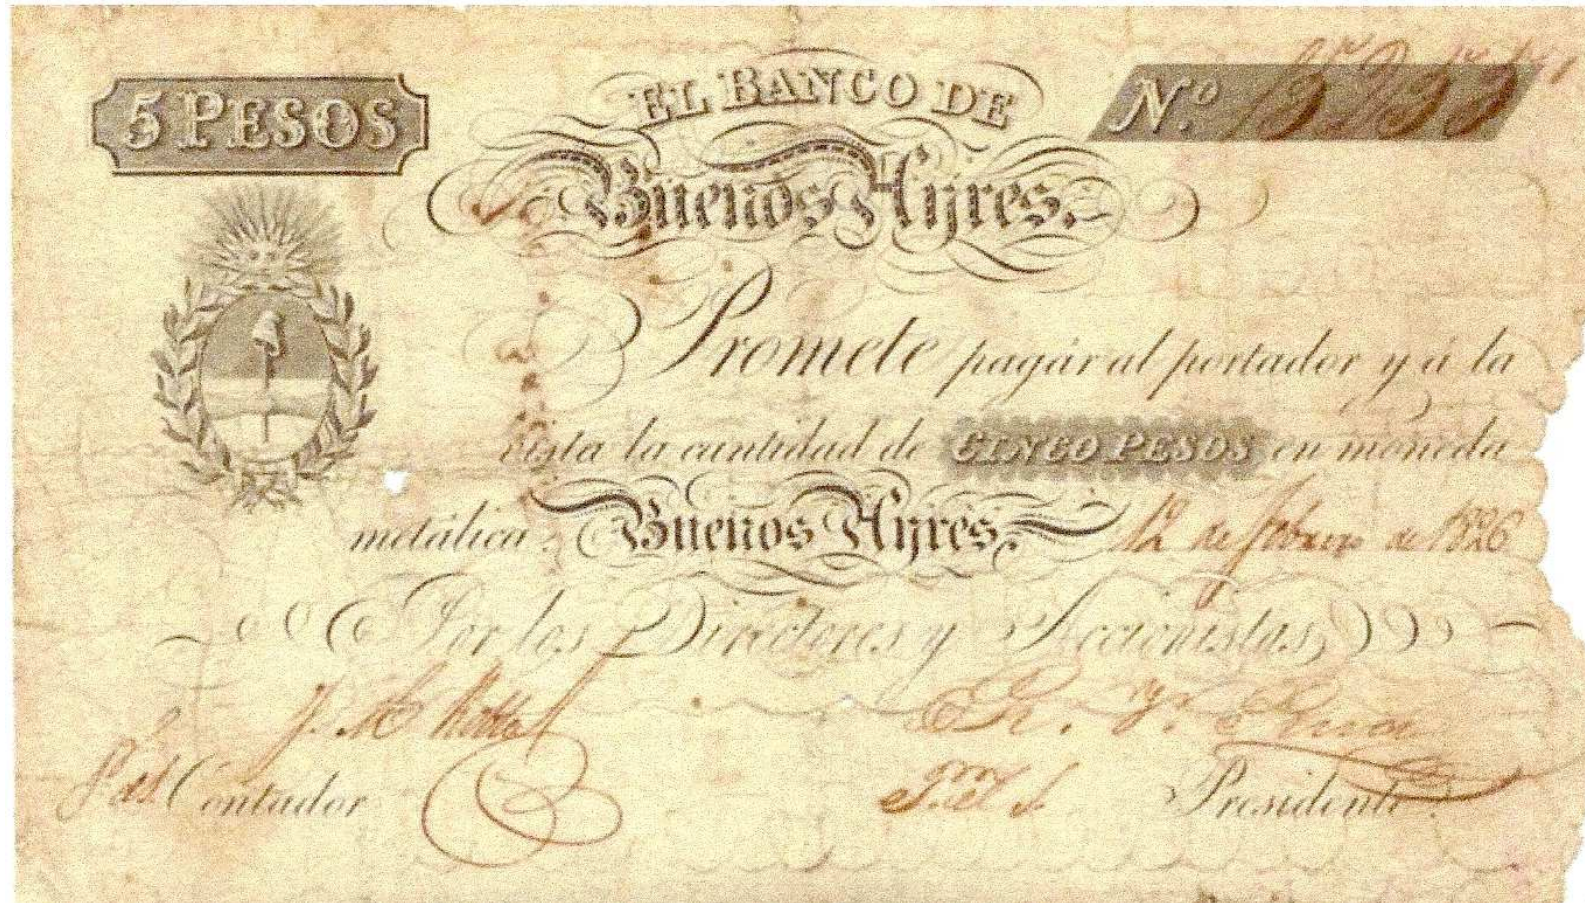 5 PESOS
EL BANCO DE
Nº.
Buenos Ayres.
Promete pagár al portador y á la
vista la cantidad de CINCO PESOS en moneda
metálica. Buenos Ayres. 12 de febrero de 1826
Por los Directores y Accionistas,
Contador
Presidente.